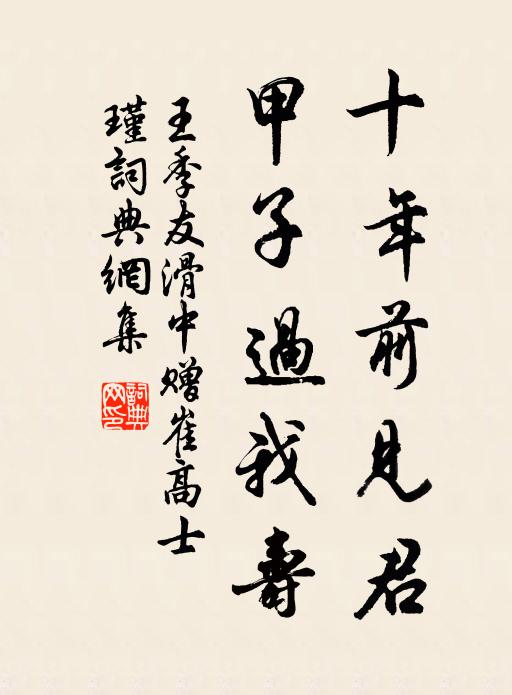 十年前見君
甲子過我壽
王季友滑中贈崔高士
瑾詞典網集
詞典網印